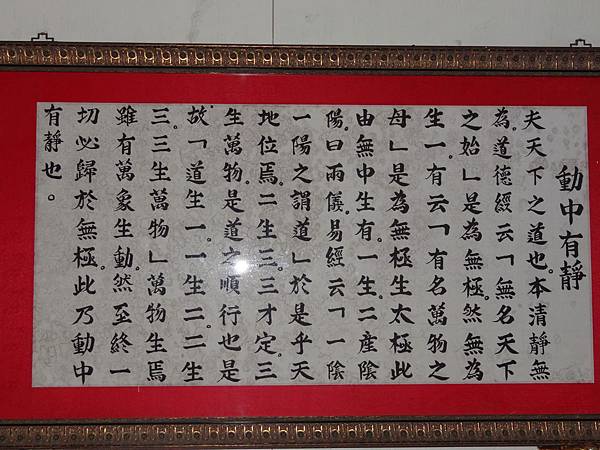 動中有靜
夫天下之道也。本清靜無
為。道德經云「無名天下
之始」是為無極。然無為
生一。有云「有名萬物之
母」是為無極生太極此
由無中生有。一生。二產陰
陽。曰兩儀。易經云「一陰
一陽之謂道」於是乎天
地位焉。二生三。三才定。三
生萬物。是道之順行也是
故。「道生一。一生二。二生
三。三生萬物」萬物生焉
雖有萬象生動。然至終一
切必歸於無極。此乃動中
有靜也。